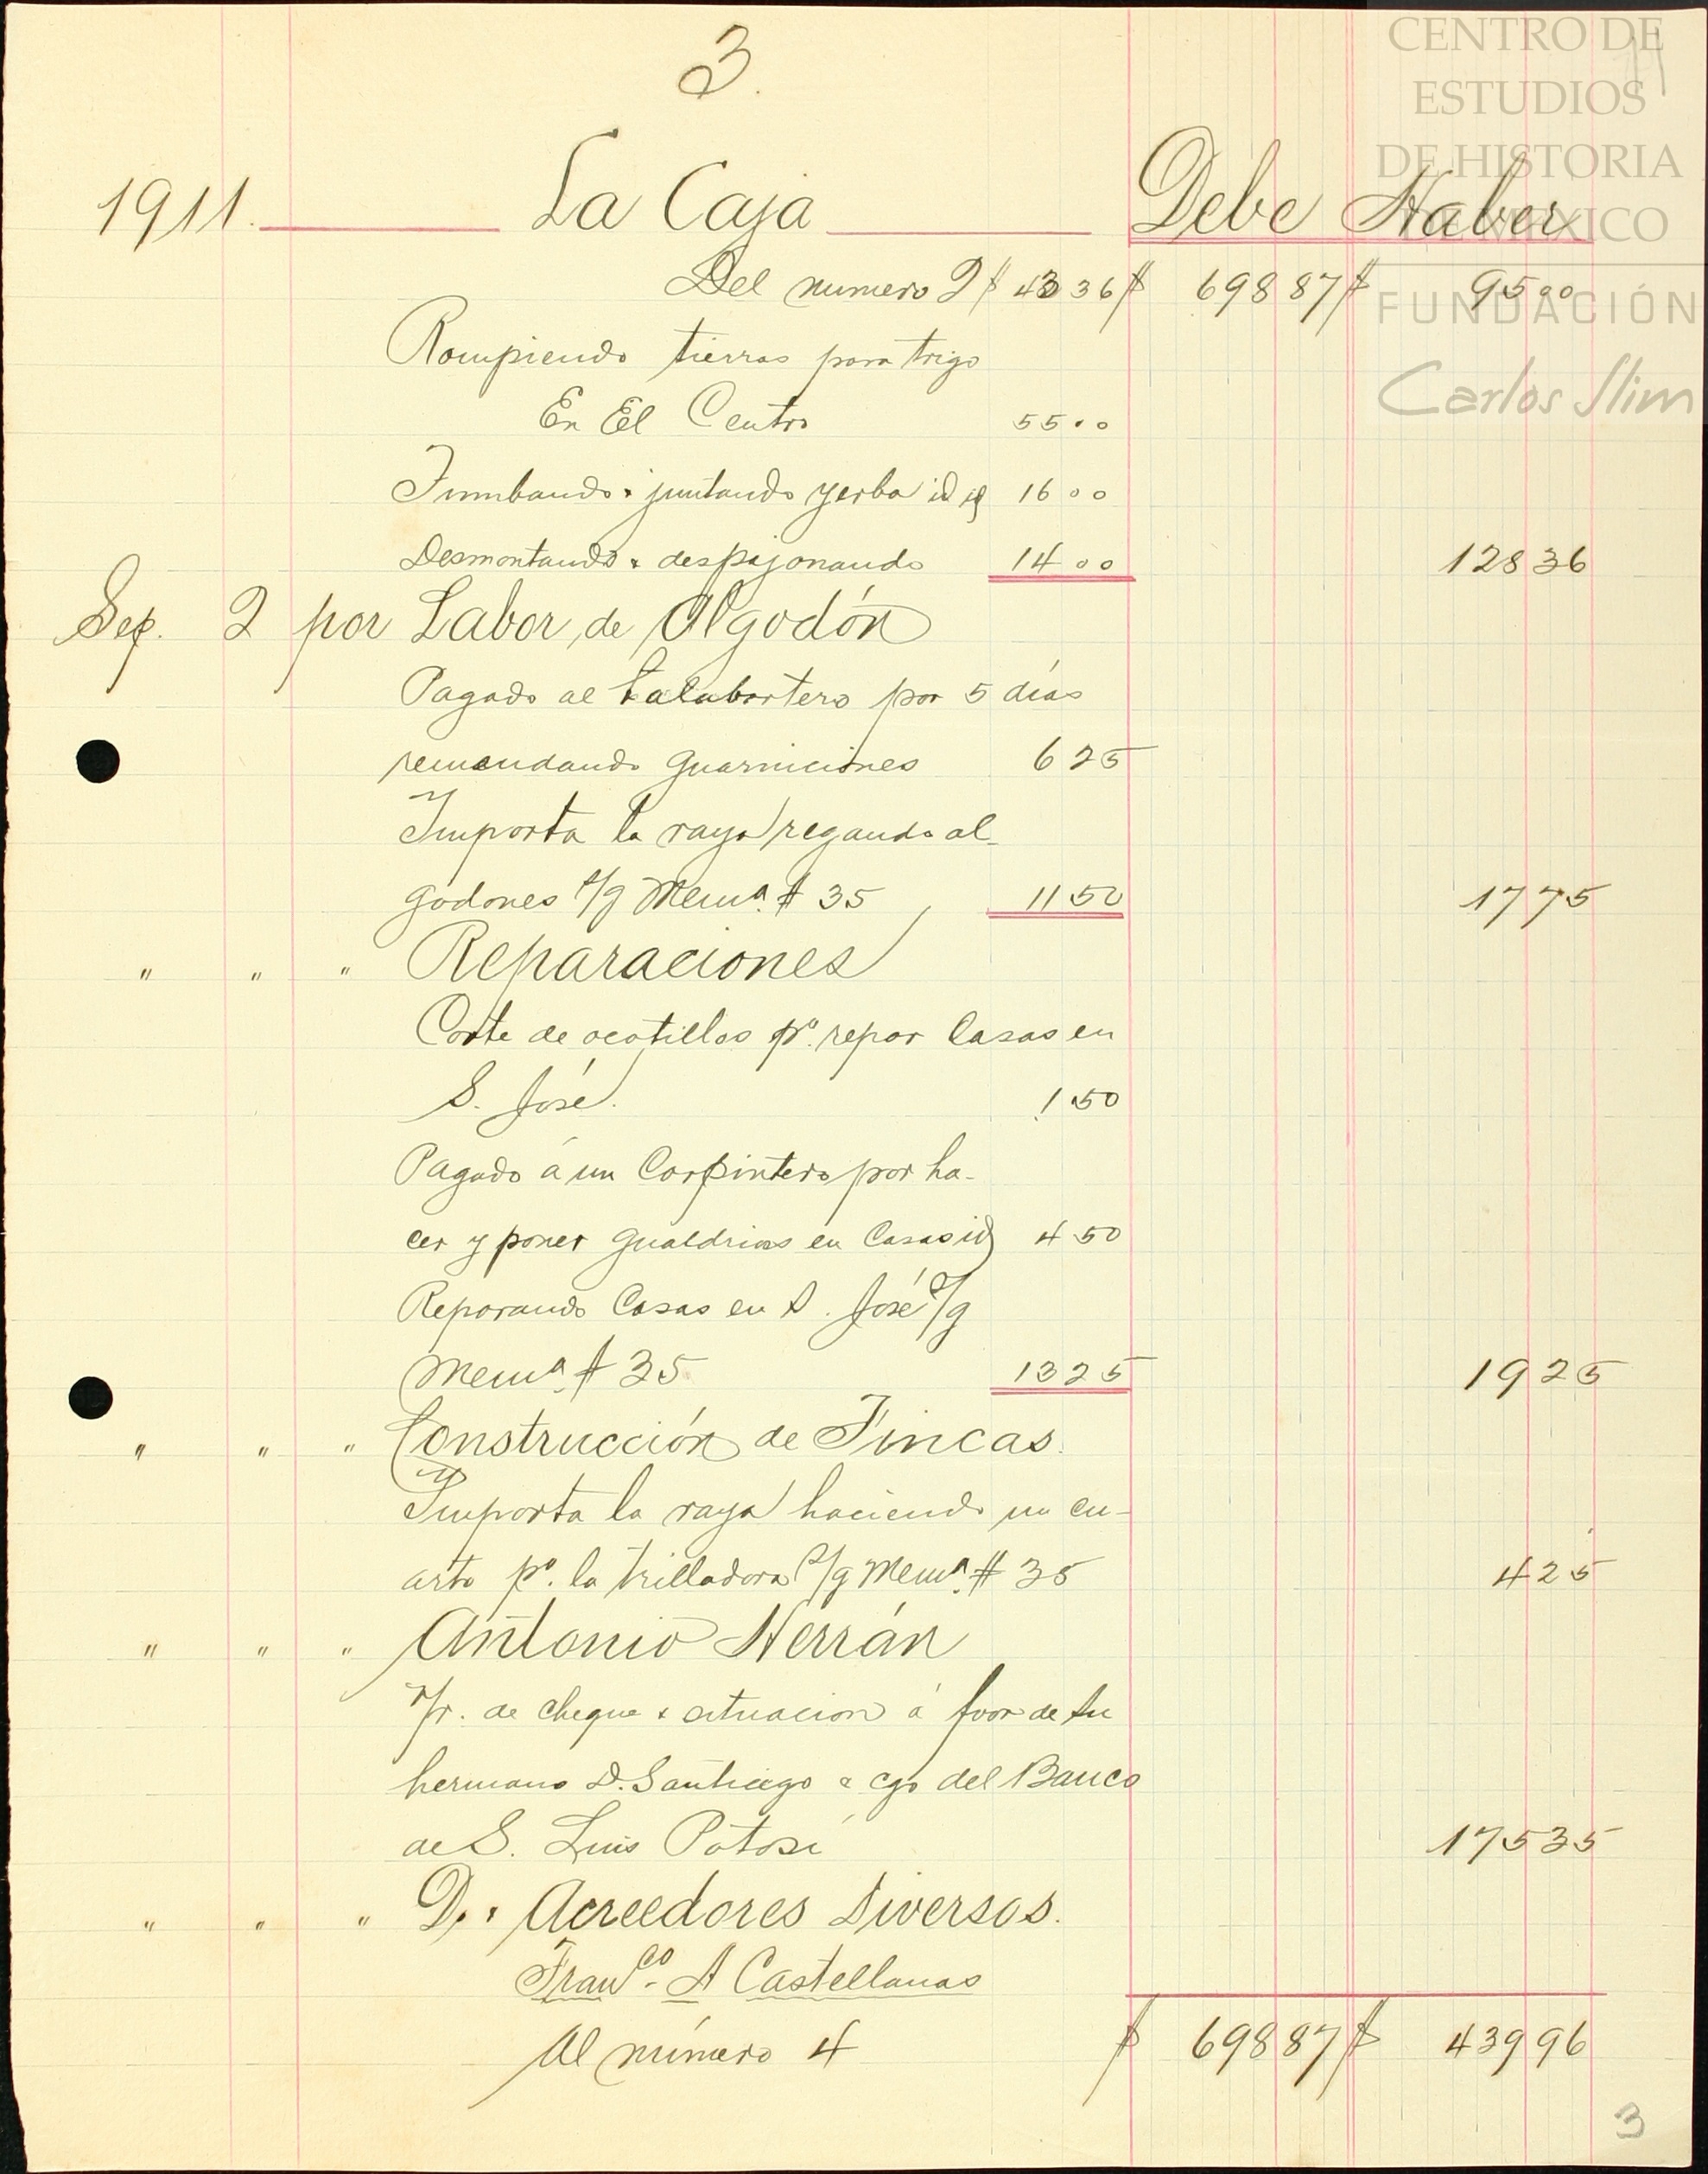 3.
CENTRO DE
ESTUDIOS
DE HISTORIA
DE MÉXICO
FUNDACIÓN
Carlos Slim
1911. La Caja Debe Haber
Del numero 2 $ 43 36 $ 698 87 $ 95 00
Rompiendo tierras para trigo
En El Centro 55 00
Tumbando & juntando yerba id id 16 00
Desmontando & despajonando 14 00 128 36
Sep. 2 por Labor de Algodón
Pagado al talabartero por 5 días
remendando guarniciones 6 25
Importa la raya regando al-
godones s/g Memª. # 35 11 50 17 75
" " " Reparaciones
Corte de ocotillos pª. repar Casas en
S. José. 1 50
Pagado á un Carpintero por ha-
cer y poner gualdrias en Casas id 4 50
Reparando Casas en S. José s/g
Memª. # 35 13 25 19 25
" " " Construcción de Fincas.
Importa la raya haciendo un cu-
arto pª. la trilladora s/g Memª. # 35 4 25
" " " Antonio Herrán
v/r. de cheque & situacion á favor de su
hermano D. Santiago & cgo del Banco
de S. Luis Potosí 175 35
" " " D. & Acreedores Diversos.
Franco. A Castellanos
Al número 4 $ 698 87 $ 439 96
3